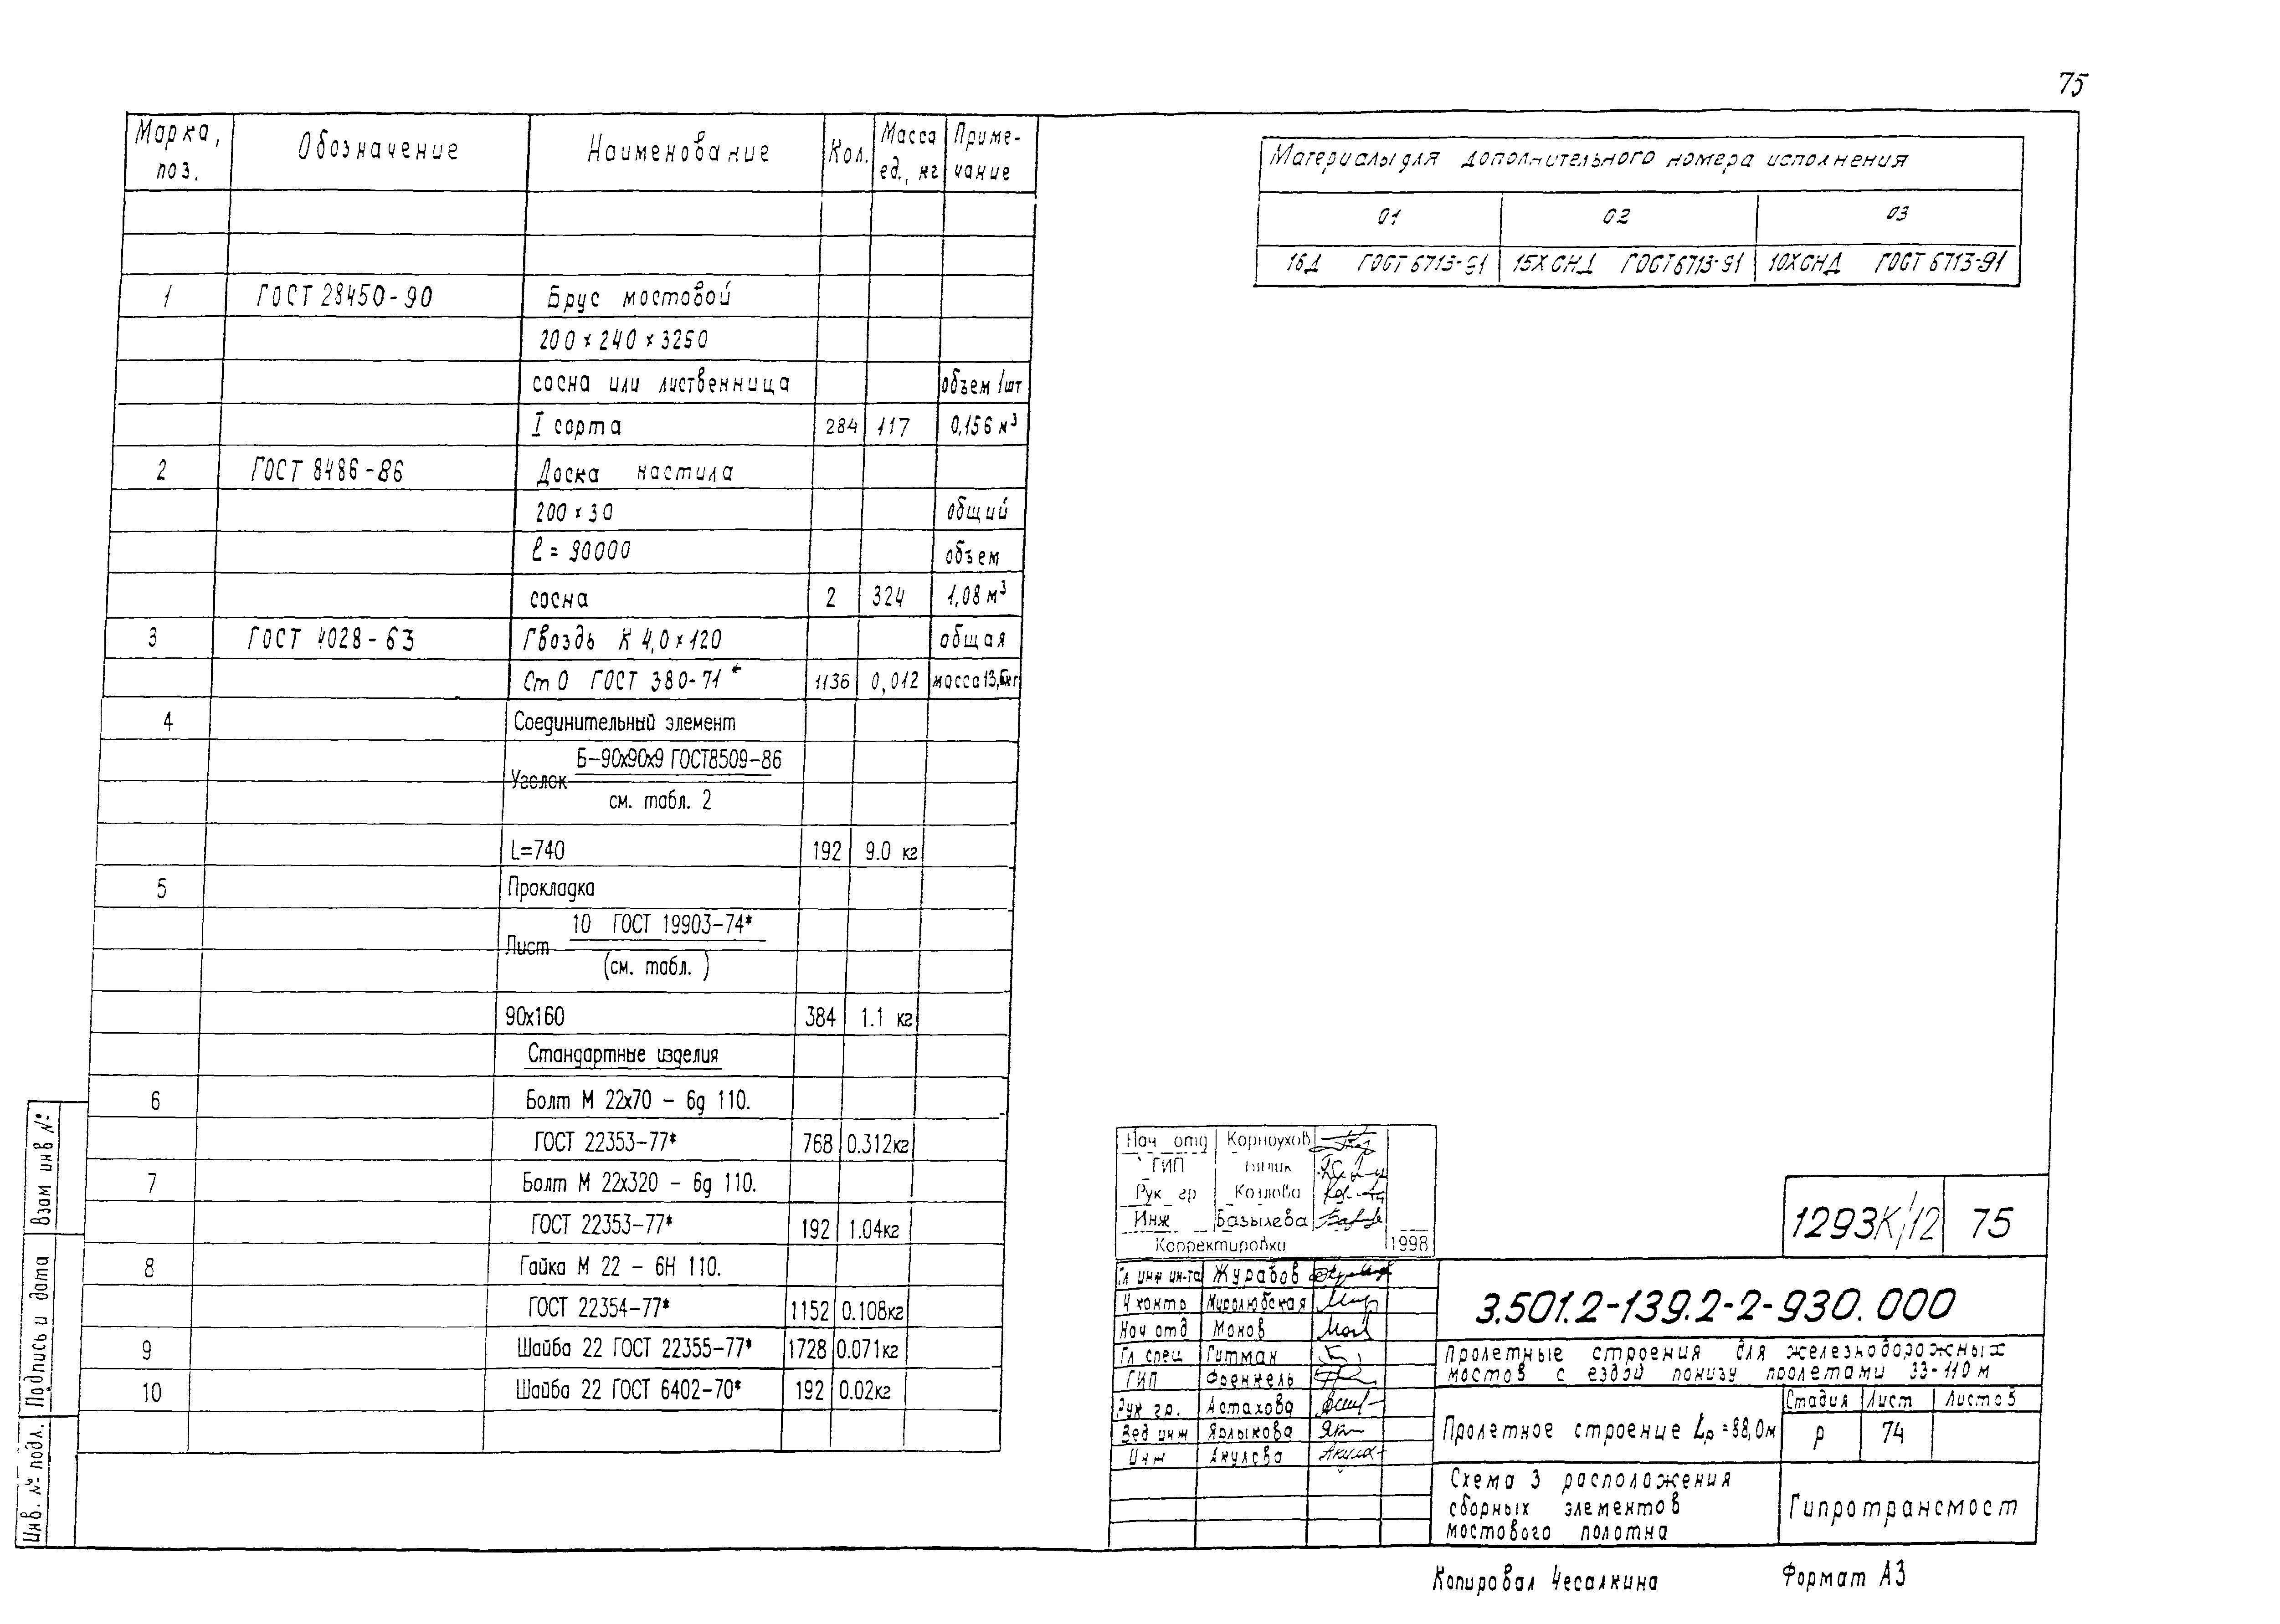 75
Марка, поз. Обозначение Наименование Кол. Масса ед., кг Приме-чание
1 ГОСТ 28450-90 Брус мостовой
200 × 240 × 3250
сосна или лиственница объем 1шт
I сорта 284 117 0,156 м³
2 ГОСТ 8486-86 Доска настила
200 × 30 общий
ℓ = 90000 объем
сосна 2 324 1,08 м³
3 ГОСТ 4028-63 Гвоздь К 4,0×120 общая
Ст 0 ГОСТ 380-71* 1136 0,012 масса 13,6кг
4 Соединительный элемент
Уголок Б-90х90х9 ГОСТ8509-86
см. табл. 2
L=740 192 9.0 кг
5 Прокладка
Лист 10 ГОСТ 19903-74*
(см. табл. )
90х160 384 1.1 кг
Стандартные изделия
6 Болт М 22х70 - 6g 110.
ГОСТ 22353-77* 768 0.312кг
7 Болт М 22х320 - 6g 110.
ГОСТ 22353-77* 192 1.04кг
8 Гайка М 22 - 6Н 110.
ГОСТ 22354-77* 1152 0.108кг
9 Шайба 22 ГОСТ 22355-77* 1728 0.071кг
10 Шайба 22 ГОСТ 6402-70* 192 0.02кг
Материалы для дополнительного номера исполнения
01 02 03
16Д ГОСТ 6713-91 15ХСНД ГОСТ 6713-91 10ХСНД ГОСТ 6713-91
Взам инв №
Подпись и дата
Инв. № подл.
Нач отд Корноухов
ГИП
Рук гр Козлова
Инж Базылева
Корректировка 1998
Гл инж ин-та Журабов
Н контр Миролюбская
Нач отд Монов
Гл спец Гитман
ГИП Френкель
Рук гр. Астахова
Вед инж Ярлыкова
Инж Акулова
1293К/12 75
3.501.2-139.2-2-930.000
Пролетные строения для железнодорожных
мостов с ездой понизу пролетами 33-110 м
Пролетное строение Lр = 88,0м
Стадия Лист Листов
Р 74
Схема 3 расположения
сборных элементов
мостового полотна
Гипротрансмост
Копировал Чесалкина Формат А3